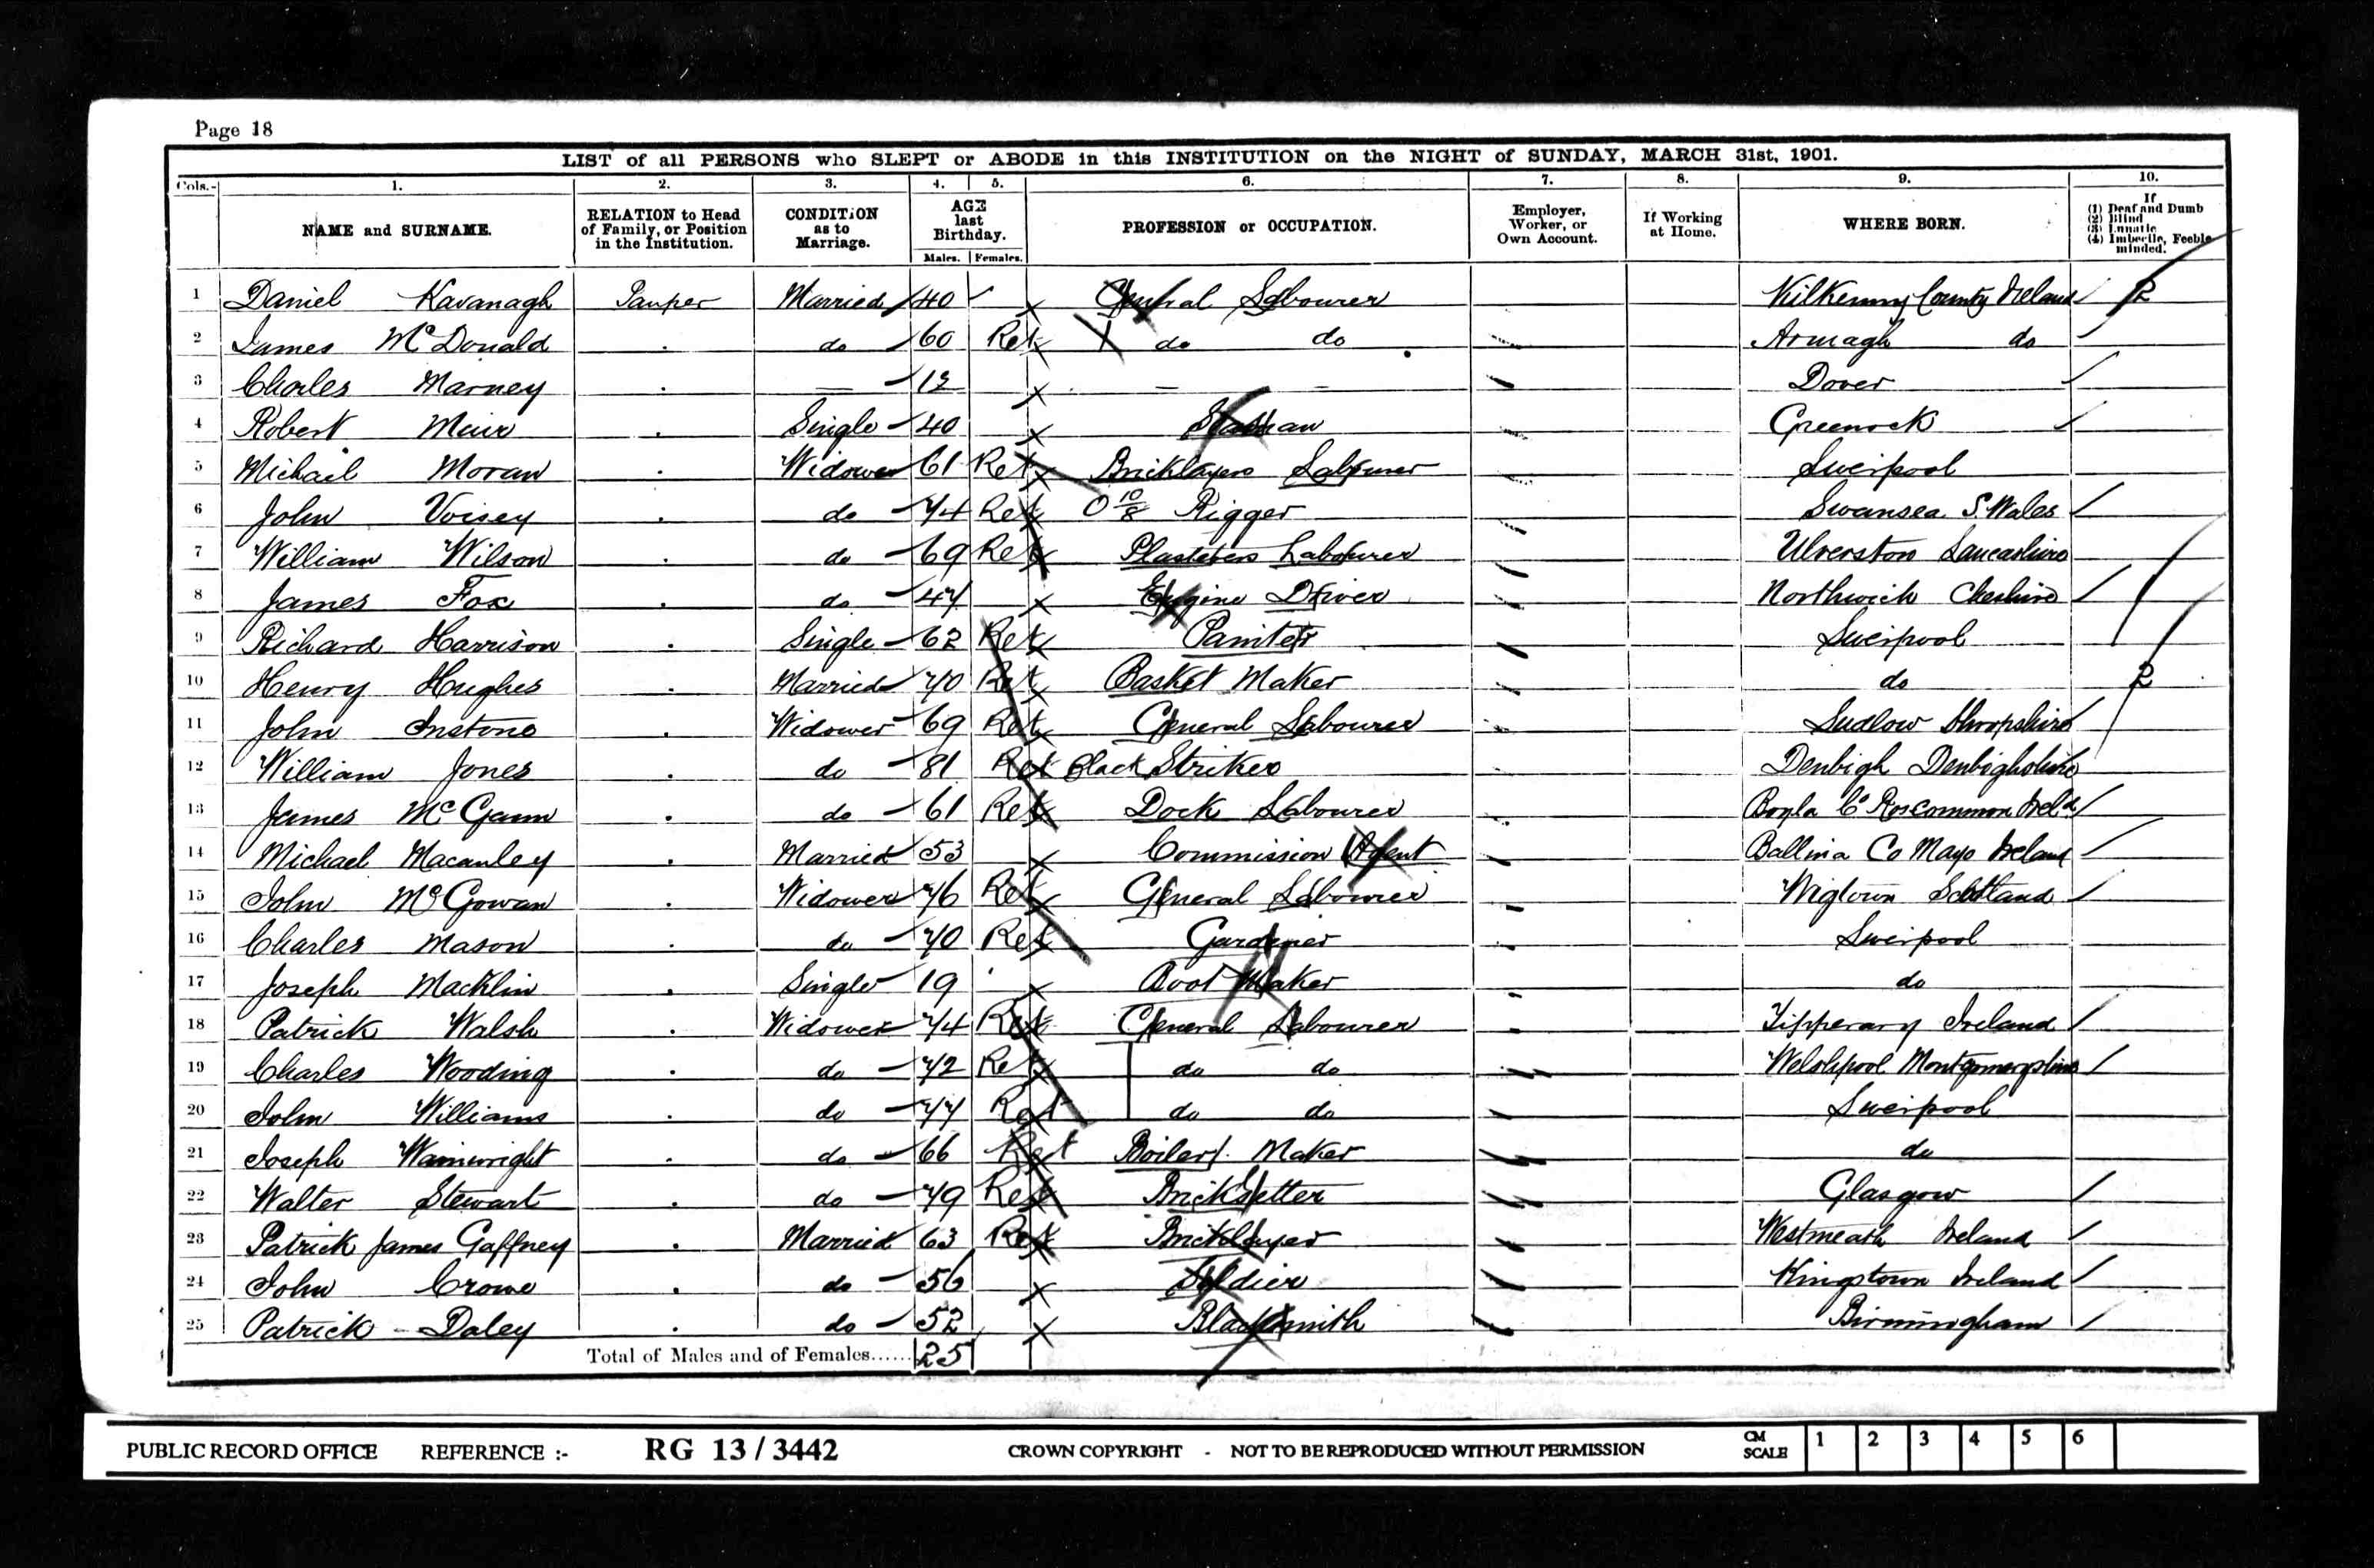 Page 18
LIST of all PERSONS who SLEPT or ABODE in this INSTITUTION on the NIGHT of SUNDAY, MARCH 31st, 1901.
Cols.- 1. 2. 3. 4. 5. 6. 7. 8. 9. 10.
NAME and SURNAME. RELATION to Head of Family, or Position in the Institution. CONDITION as to Marriage. AGE last Birthday. Males. Females. PROFESSION or OCCUPATION. Employer, Worker, or Own Account. If Working at Home. WHERE BORN. If (1) Deaf and Dumb (2) Blind (3) Lunatic (4) Imbecile, Feeble minded.
1 Daniel Kavanagh Pauper Married 40 General Labourer Kilkenny County Ireland 2
2 James McDonald do 60 Ret do do Armagh do
3 Charles Marney 12 Dover
4 Robert Muir Single 40 Seaman Greenock
5 Michael Moran Widower 61 Ret Bricklayers Labourer Liverpool
6 John Voisey do 74 Ret Rigger Swansea S. Wales
7 William Wilson do 69 Ret Plasterers Labourer Ulverston Lancashire
8 James Fox do 47 Engine Driver Northwich Cheshire
9 Richard Harrison Single 62 Ret Painter Liverpool
10 Henry Hughes Married 70 Ret Basket Maker do 2
11 John Instone Widower 69 Ret General Labourer Ludlow Shropshire
12 William Jones do 81 Ret Black Striker Denbigh Denbighshire
13 James McGann do 61 Ret Dock Labourer Boyla Co Roscommon Ireld
14 Michael Macauley Married 53 Commission Agent Ballina Co Mayo Ireland
15 John McGowan Widower 76 Ret General Labourer Wigtown Scotland
16 Charles Mason do 70 Ret Gardener Liverpool
17 Joseph Macklin Single 19 Boot Maker do
18 Patrick Walsh Widower 74 Ret General Labourer Tipperary Ireland
19 Charles Wooding do 72 Ret do do Welshpool Montgomeryshire
20 John Williams do 77 Ret do do Liverpool
21 Joseph Wainwright do 66 Ret Boiler Maker do
22 Walter Stewart do 79 Ret Bricksetter Glasgow
23 Patrick James Gaffney Married 63 Ret Bricklayer Westmeath Ireland
24 John Crowe do 56 Soldier Kingstown Ireland
25 Patrick Daley do 52 Blacksmith Birmingham
Total of Males and of Females...... 25
PUBLIC RECORD OFFICE REFERENCE :- RG 13 / 3442 CROWN COPYRIGHT - NOT TO BE REPRODUCED WITHOUT PERMISSION CM SCALE 1 2 3 4 5 6